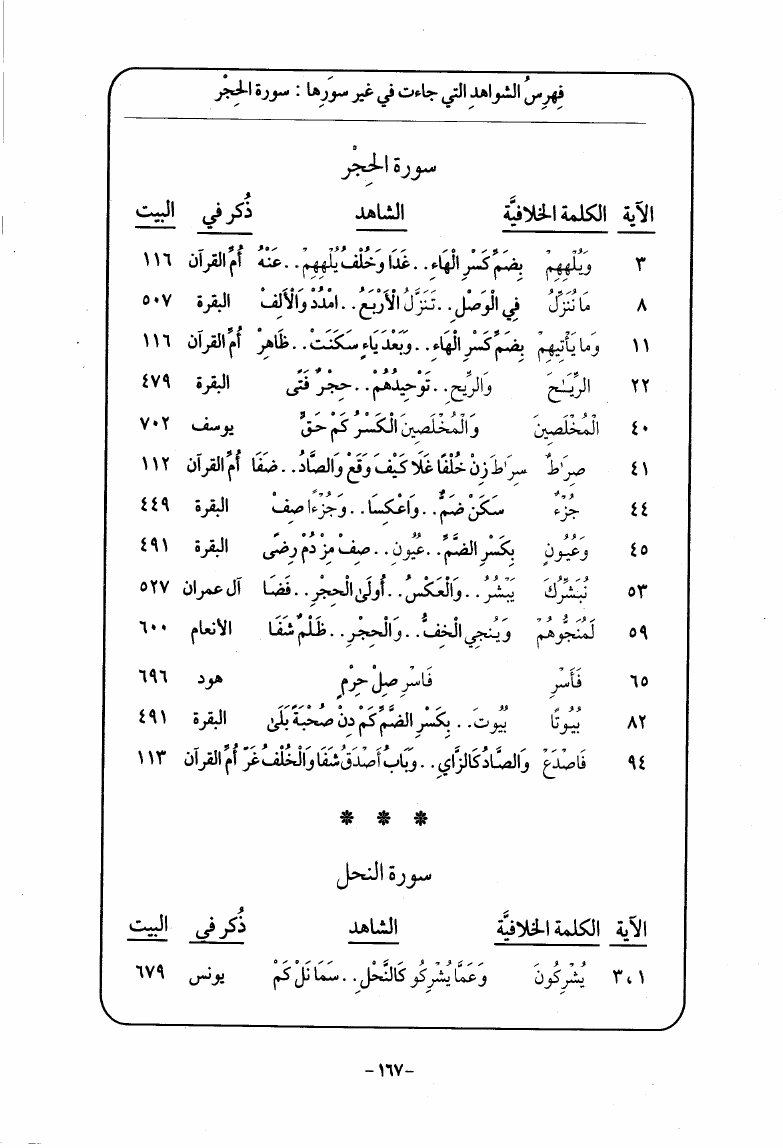 فِهرِسُ الشواهدِ التي جاءت في غير سوَرِها : سورة الحِجْر
سورة الحِجْر
الآية الكلمة الخلافيَّة الشاهد ذُكر في البيت
٣ وَيُلْهِهِمُ بِضَمِّ كَسْرِ الْهَاءِ..غَدَا وَخُلْفُ يُلْهِهِمُ..عَنْهُ أُمِّ القرآن ١١٦
٨ مَا نُنَزِّلُ فِي الْوَصْلِ..تَنَزَّلُ الأَرْبَعُ..امْدُدْ وَالأَلِفْ البقرة ٥٠٧
١١ وَمَا يَأْتِيهِمْ بِضَمِّ كَسْرِ الْهَاءِ..وَبَعْدَ يَاءٍ سَكَنَتْ..ظَاهِرْ أُمِّ القرآن ١١٦
٢٢ الرِّيَـٰحَ وَالرِّيحِ..تَوْحِيدُهُمْ..حِجْرٌ فَتَى البقرة ٤٧٩
٤٠ الْمُخْلَصِينَ وَالْمُخْلَصِينَ الْكَسْرُ كَمْ حَقٌّ يوسف ٧٠٢
٤١ صِرَٰطٌ سِرَٰطَ زِنْ خُلْفًا غَلَا كَيْفَ وَقَعْ وَالصَّادُ..ضَفَا أُمِّ القرآن ١١٢
٤٤ جُزْءٌ سَكَنْ ضَمٌّ..وَاعْكِسَا..وَجُزْءًا صِفْ البقرة ٤٤٩
٤٥ وَعُيُونٍ بِكَسْرِ الضَّمِّ..عُيُونِ..صِفْ مِزْ دُمْ رِضًى البقرة ٤٩١
٥٣ نُبَشِّرُكَ يَبْشُرُ..وَالْعَكْسُ..أُولَى الْحِجْرِ..فَضَا آل عمران ٥٢٧
٥٩ لَمُنَجُّوهُمْ وَيُنجِي الْخِفُّ..وَالْحِجْرِ..ظَلْمٌ شَفَا الأنعام ٦٠٠
٦٥ فَأَسْرِ فَاسْرِ صِلْ حِرْمٍ هود ٦٩٦
٨٢ بُيُوتًا بُيُوتَ..بِكَسْرِ الضَّمِّ كَمْ دِنْ صُحْبَةٌ بَلَى البقرة ٤٩١
٩٤ فَاصْدَعْ وَالصَّادُ كَالزَّايِ..وَبَابُ أَصْدَقُ شَفَا وَالْخُلْفُ غَرّ أُمِّ القرآن ١١٣
* * *
سورة النحل
الآية الكلمة الخلافيَّة الشاهد ذُكر في البيت
٣،١ يُشْرِكُونَ وَعَمَّا يُشْرِكُو كَالنَّحْلِ..سَمَا نَلْ كَمْ يونس ٦٧٩
-١٦٧-